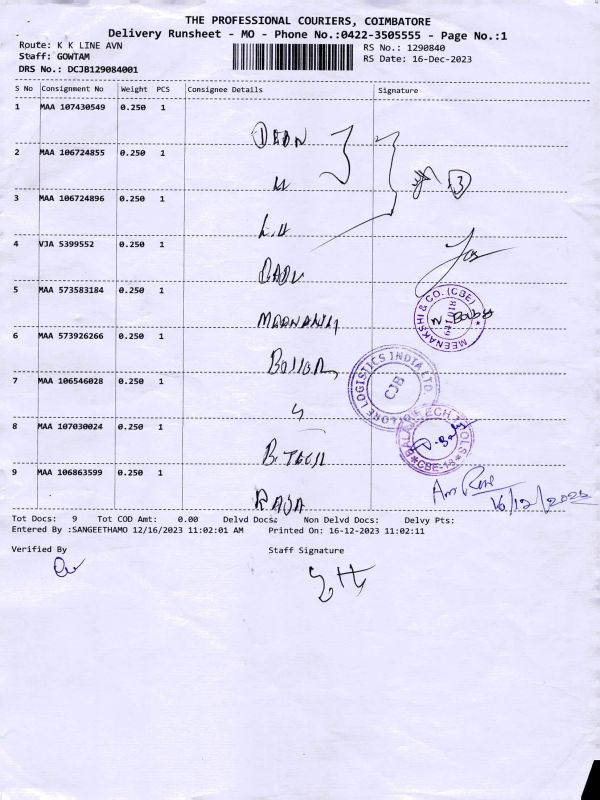 THE PROFESSIONAL COURIERS, COIMBATORE
Delivery Runsheet - MO - Phone No.:0422-3505555 - Page No.:1
Route: K K LINE AVN
RS No.: 1290840
Staff: GOWTAM
RS Date: 16-Dec-2023
DRS No.: DCJB129084001
S No Consignment No Weight PCS Consignee Details Signature
1 MAA 107430549 0.250 1
2 MAA 106724855 0.250 1
3 MAA 106724896 0.250 1
4 VJA 5399552 0.250 1
5 MAA 573583184 0.250 1
MEENAKSHI & CO. (CBE)
6 MAA 573926266 0.250 1
LOGISTICS INDIA LTD.
CJB
7 MAA 106546028 0.250 1
8 MAA 107030024 0.250 1
B. TECH
CBE-18
9 MAA 106863599 0.250 1
RAJA
Tot Docs: 9 Tot COD Amt: 0.00 Delvd Docs: Non Delvd Docs: Delvy Pts:
Entered By :SANGEETHAMO 12/16/2023 11:02:01 AM Printed On: 16-12-2023 11:02:11
Verified By Staff Signature